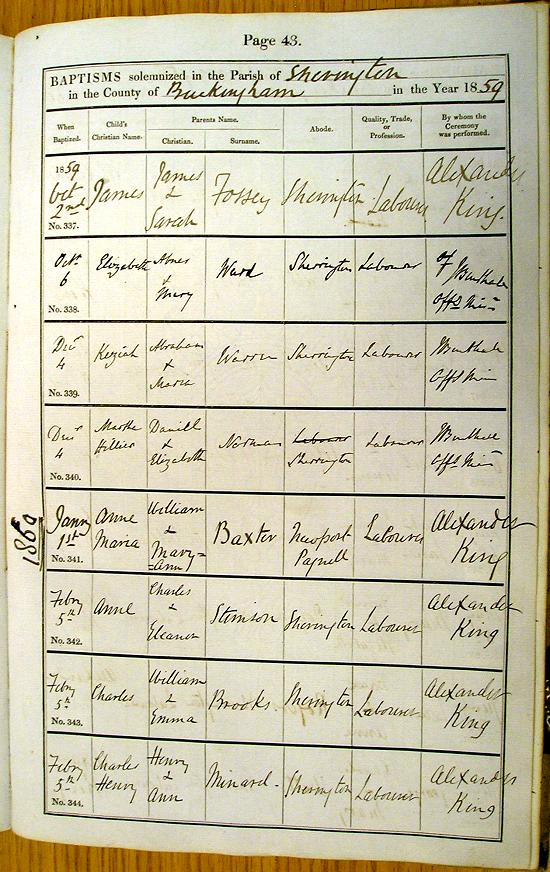 Page 43.
BAPTISMS solemnized in the Parish of Sherington
in the County of Buckingham in the Year 1859
When Baptized.
Child's Christian Name.
Parents Name.
Christian.
Surname.
Abode.
Quality, Trade, or Profession.
By whom the Ceremony was performed.
1859
Oct
2nd
No. 337.
James
James
&
Sarah
Fossey
Sherington
Labourer
Alexander
King.
Octr
6
No. 338.
Elizabeth
&
Mary
Ward
Sherrington
Labourer
Offg Minr
Decr
4
No. 339.
Keziah
Abraham
&
Maria
Warren
Sherrington
Labourer
Offg Minr
Decr
4
No. 340.
Martha
Hillier
Daniel
&
Elizabeth
Norman
Labourer
Sherrington
Labourer
Offg Minr
1860
Jany
1st
No. 341.
Anne
Maria
William
&
Mary=
=Ann
Baxter
Newport
Pagnell
Labourer
Alexander
King
Feby
5th
No. 342.
Anne
Charles
&
Eleanor
Stimson
Sherington
Labourer
Alexander
King
Feby
5th
No. 343.
Charles
William
&
Emma
Brooks
Sherington
Labourer
Alexander
King
Feby
5th
No. 344.
Charles
Henry
Henry
&
Ann
Minard
Sherington
Labourer
Alexander
King